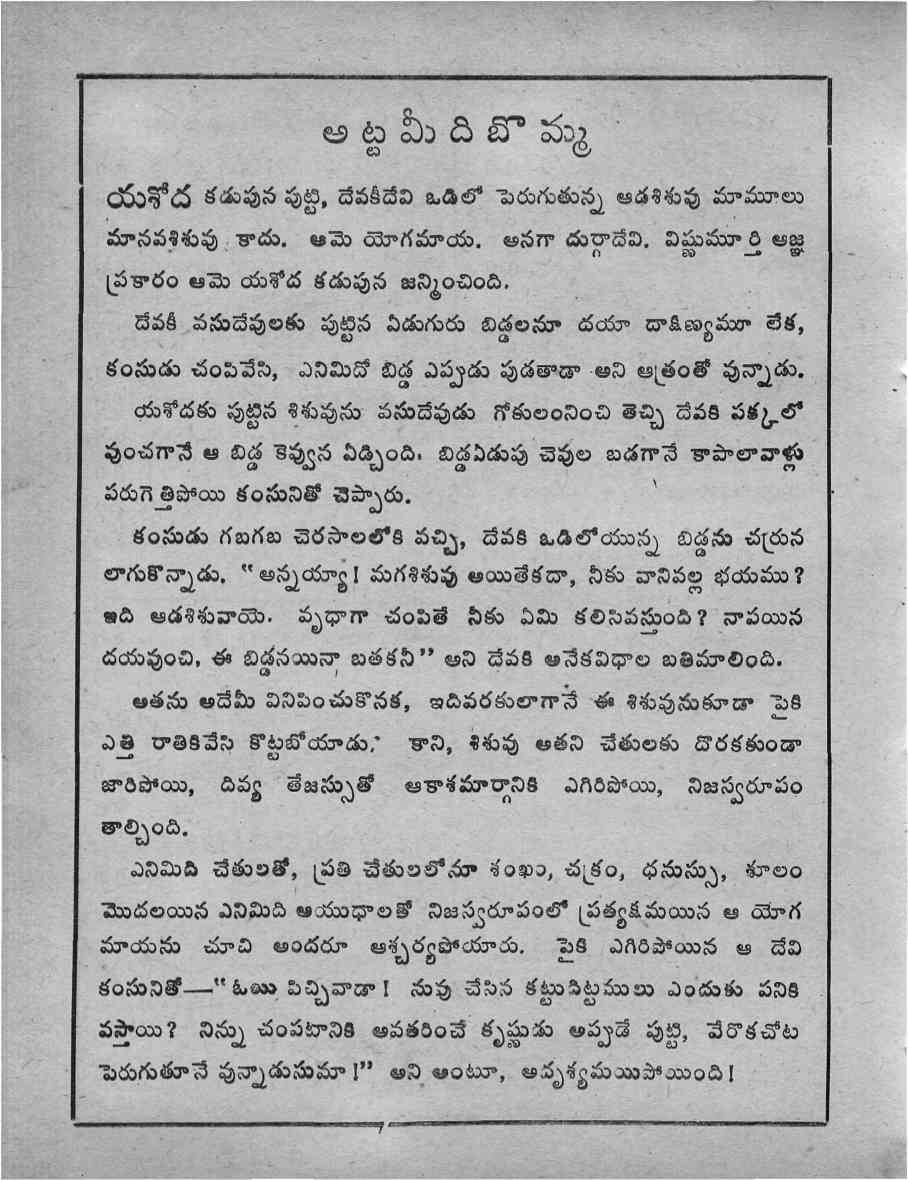 అట్టమీదిబొమ్మ
యశోద కడుపున పుట్టి, దేవకీదేవి ఒడిలో పెరుగుతున్న ఆడశిశువు మామూలు
మానవశిశువు కాదు. ఆమె యోగమాయ. అనగా దుర్గాదేవి. విష్ణుమూర్తి ఆజ్ఞ
ప్రకారం ఆమె యశోద కడుపున జన్మించింది.
దేవకీ వసుదేవులకు పుట్టిన ఏడుగురు బిడ్డలనూ దయా దాక్షిణ్యమూ లేక,
కంసుడు చంపివేసి, ఎనిమిదో బిడ్డ ఎప్పుడు పుడతాడా అని ఆత్రంతో వున్నాడు.
యశోదకు పుట్టిన శిశువును వసుదేవుడు గోకులంనించి తెచ్చి దేవకి పక్కలో
వుంచగానే ఆ బిడ్డ కెవ్వున ఏడ్చింది. బిడ్డఏడుపు చెవుల బడగానే కాపాలావాళ్లు
పరుగెత్తిపోయి కంసునితో చెప్పారు.
కంసుడు గబగబ చెరసాలలోకి వచ్చి, దేవకి ఒడిలోయున్న బిడ్డను చర్రున
లాగుకొన్నాడు. “అన్నయ్యా! మగశిశువు అయితేకదా, నీకు వానివల్ల భయము?
ఇది ఆడశిశువాయె. వృధాగా చంపితే నీకు ఏమి కలిసివస్తుంది? నాపయిన
దయవుంచి, ఈ బిడ్డనయినా బతకనీ” అని దేవకి అనేకవిధాల బతిమాలింది.
అతను అదేమీ వినిపించుకొనక, ఇదివరకులాగానే ఈ శిశువునుకూడా పైకి
ఎత్తి రాతికివేసి కొట్టబోయాడు. కాని, శిశువు అతని చేతులకు దొరకకుండా
జారిపోయి, దివ్య తేజస్సుతో ఆకాశమార్గానికి ఎగిరిపోయి, నిజస్వరూపం
తాల్చింది.
ఎనిమిది చేతులతో, ప్రతి చేతులలోనూ శంఖం, చక్రం, ధనుస్సు, శూలం
మొదలయిన ఎనిమిది ఆయుధాలతో నిజస్వరూపంలో ప్రత్యక్షమయిన ఆ యోగ
మాయను చూచి అందరూ ఆశ్చర్యపోయారు. పైకి ఎగిరిపోయిన ఆ దేవి
కంసునితో—“ఓయి పిచ్చివాడా! నువు చేసిన కట్టుదిట్టములు ఎందుకు పనికి
వస్తాయి? నిన్ను చంపటానికి అవతరించే కృష్ణుడు అప్పుడే పుట్టి, వేరొకచోట
పెరుగుతూనే వున్నాడుసుమా!” అని అంటూ, అదృశ్యమయిపోయింది!